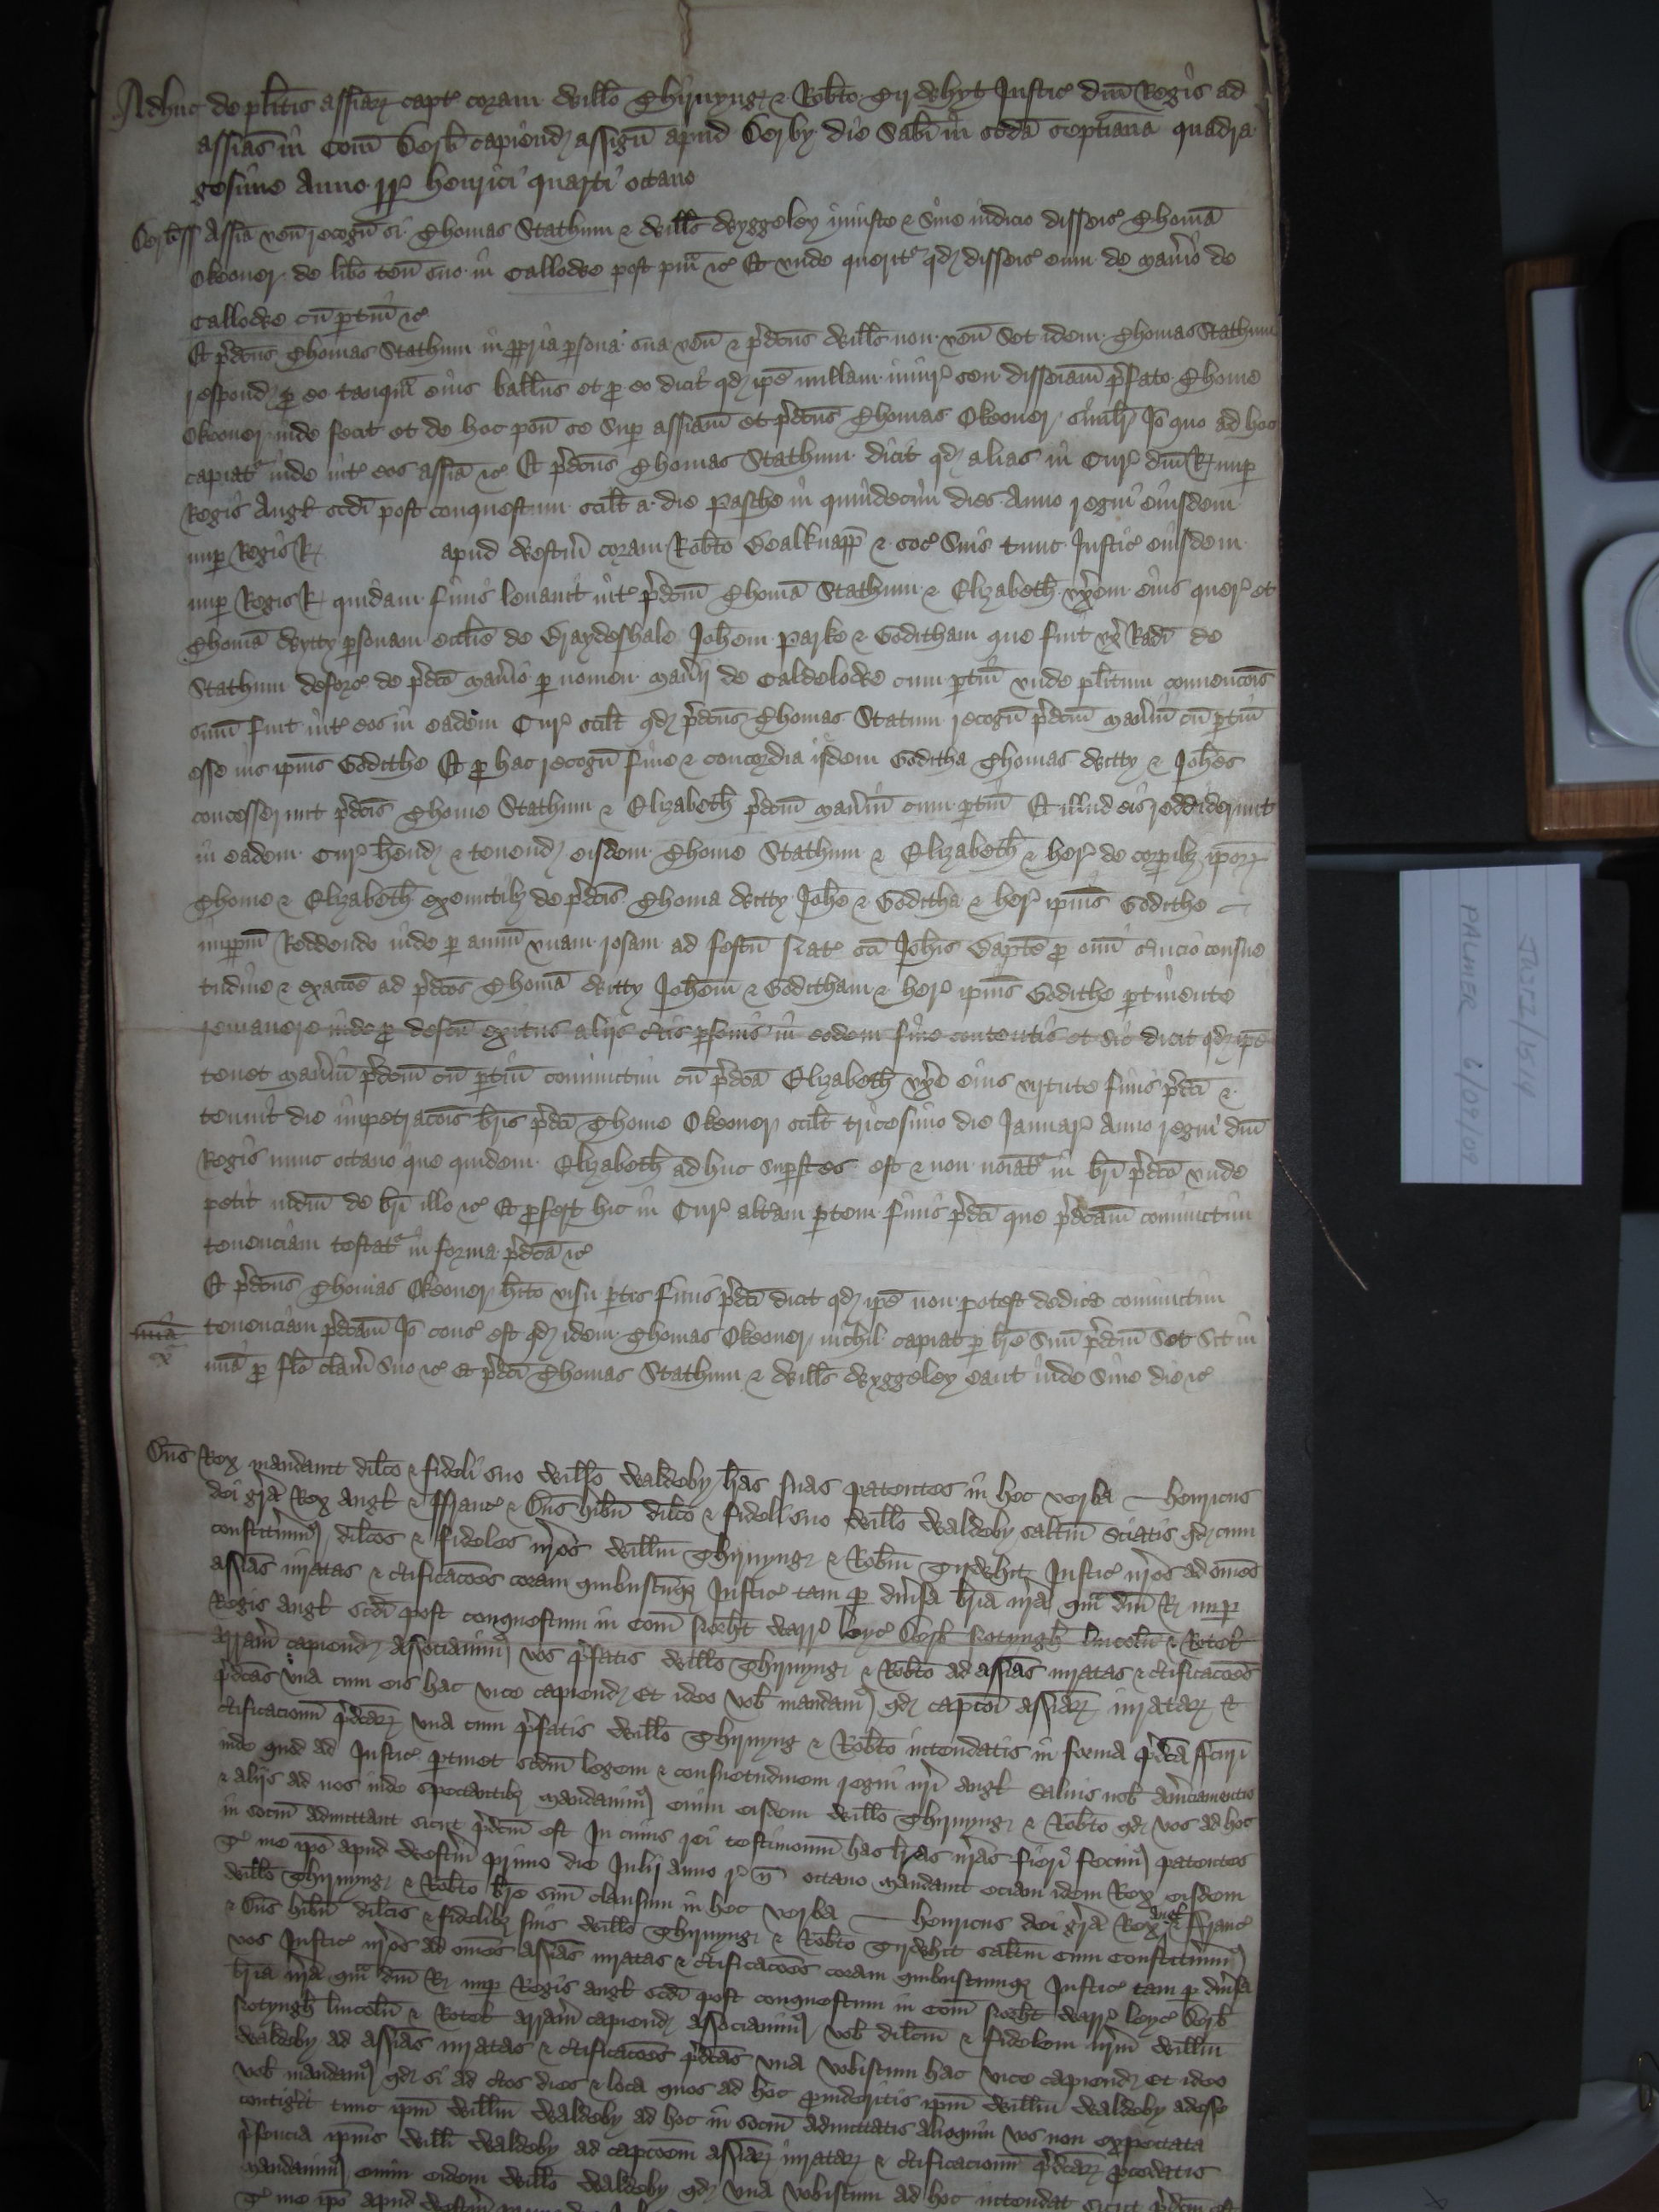 Adhuc de pl̄itis assīaꝝ capt̕ coram Will̄o Thirnyng̕ & Rob̄to Tirwhyt Justic̕ dn̄i Regis ad
assīas in Com̄ Derb̕ capiend̕ assign̄ apud Derby die Sabī in scd̄a septīana quadra
gesime Anno r̕r̕ Henrici quarti octauo
Derb̕ ss Assīa ven̄ recogn̄ si Thomas Stathum & Will̄s Wyggeley iniuste & sine iudicio disseis̕ Thomā
Okeouer de lib̄o ten̄ suo in Callowe post pm̄ &c̕ Et vnde querit̕ qd̕ disseis̕ eum de man̄io de
Callowe cū ptin̄ &c̕
Et p̄dc̄us Thomas Stathum in ppria psona sua ven̄ & p̄dc̄us Will̄s non ven̄ Set idem Thomas Stathum
respond̕ p eo tanqͣm eius ball̄us et p eo dicit qd̕ ip̄e nullam iniur̕ seu disseis̄iam p̄fato Thome
Okeouer inde fecit et de hoc pon̄ se sup assīam et p̄dc̄us Thomas Okeouer simil̕r Jo̕ quo ad hoc
capiat̕ inde int̕ eos assīa &c̕ Et p̄dc̄us Thomas Stathum dicit qd̕ alias in Cur̕ dn̄i R̕ nup
Regis Angl̕ scd̄i post conquestum scil̄t a die Pasche in quindecim dies Anno regni eiusdem
nup Regis R̕ apud Westm̄ coram Rob̄to Bealknapp̄ & soc̕ suis tunc Justic̕ eiusdem
nup Regis R̕ quidam finis leuauit int̕ p̄dc̄m Thomā Stathum & Elizabeth̄ vx̄em eius quer̕ et
Thomā Wytty psonam eccl̄ie de Graydeshale Joh̄em Parke & Goditham que fuit vx̄ Radī de
Stathum deforc̕ de p̄dc̄o man̄io p nomen man̄ij de Caldelowe cum ptin̄ vnde pl̄itum conuenc̄ois
sum̄ fuit int̕ eos in eadem Cur̕ scil̄t qd̕ p̄dc̄us Thomas Statum recogn̄ p̄dc̄m man̄iū cū ptin̄
esse ius ip̄ius Godithe Et p hac recogn̄ fine & concordia ijdem Goditha Thomas Witty & Joh̄es
concesserunt p̄dc̄is Thome Stathum & Elizabeth̄ p̄dc̄m man̄iū cum ptin̄ Et illud eis reddiderunt
in eadem Cur̕ h̄end̕ & tenend̕ eisdem Thome Stathum & Elizabeth̄ & her̕ de corpib̕ ip̄oꝝ
Thome & Elizabeth̄ exeuntib̕ de p̄dc̄is Thoma Witty Joh̄e & Goditha & her̕ ip̄ius Godithe
impp̄m Reddendo inde p annū vnam rosam ad festū Nat̕ sc̄i Joh̄is Bapt̄e p om̄i s̕uicio consue
tudine & exacc̄oe ad p̄dc̄os Thomā Witty Joh̄em & Goditham & her̕ ip̄ius Godithe ptinente
remanere inde p defc̄u exitus alijs c̕tis psonis in eodem fine contentis et sic dicit qd̕ ip̄e
tenet man̄iū p̄dc̄m cū ptin̄ coniunctim cū p̄dc̄a Elizabeth̄ vx̄e eius virtute finis p̄dc̄i &
tenuit die impetrac̄ois br̄is p̄dc̄i Thome Okeouer scil̄t tricesimo die Januar̕ Anno regni dn̄i
Regis nunc octauo que quidem Elizabeth̄ adhuc supstes est & non noīat̕ in br̄i p̄dc̄o vnde
petit iudm̄ de br̄i illo &c̕ Et pfert hic in Cur̕ altam ptem finis p̄dc̄i que p̄dc̄am coniunctim
tenenciam testat̕ in forma p̄dc̄a &c̕
Et p̄dc̄us Thomas Okeouer h̄ito visu ptis finis p̄dc̄i dicit qd̕ ip̄e non potest dedice coniunctim
tenenciam p̄dc̄am Jo̕ cons̕ est qd̕ idem Thomas Okeouer nichil capiat p br̄e suū p̄dc̄m Set sit in
mīa
mīa p fl̄o clam̄ suo &c̕ et p̄dc̄i Thomas Stathum & Will̄s Wyggeley eant inde sine die &c̕
Dn̄s Rex mandauit dil̄co & fideli suo Will̄o Waldeby l̄ras suas patentes in hec verba — Henricus
dei gr̄a Rex Angl̕ & ffranc̕ & Dn̄s Hib̄n dil̄co & fideli suo Will̄o Waldeby salt̄m Sciatis qd̕ cum
constituim̕ dil̄cos & fideles nr̄os Will̄m Thirnyng̕ & Rob̄m Tirwhit Justic̕ nr̄os ad om̄es
assīas iuratas & c̕tificac̄oes coram quibuscūq̕ Justic̕ tam p diu̕sa br̄ia nr̄a qͣm dn̄i R̕ nup
Regis Angl̕ scd̄i post conquestum in Com̄ North̄t Warr̕ Leyc̕ Derb̕ Notyngh̄ Lincol̄n & Rotel̕
arram̄ capiend̕ Associauim̕ vos p̄fatis Will̄o Thirnyng̕ & Rob̄to ad assīas iuratas & c̕tificac̄oes
p̄dc̄as vna cum eis hac vice capiend̕ Et ideo vob̕ mandam̕ qd̕ capc̄oi assīaꝝ iurataꝝ &
c̕tificacionū p̄dc̄aꝝ vna cum p̄fatis Will̄o Thirnyng & Rob̄to intendatis in forma p̄dc̄a fc̄uri
inde quod ad Justic̕ ptinet scd̄m legem & consuetudinem regni nr̄i Angl̕ Saluis nob̕ am̄ciamentis
& alijs ad nos inde spectantib̕ Mandauim̕ enim eisdem Will̄o Thirnyng̕ & Rob̄to qd̕ vos ad hoc
in sociū admittant sicut p̄dc̄m est In cuius rei testimoniū has l̄ras nr̄as fieri fecim̕ patentes
T̕ me ip̄o apud Westm̄ primo die Julij anno r̕ n̄ octauo Mandauit eciam idem Rex eisdem
Will̄o Thirnyng̕ & Rob̄to br̄e suū clausum in hec verba — Henricus dei gr̄a Rex Angl̕ & ffranc̕
& Dn̄s Hib̄n dil̄cis & fidelib̕ suis Will̄o Thirnyng̕ & Rob̄to Tirwhit salt̄m Cum constituim̕
vos Justic̕ nr̄os ad om̄es assīas iuratas & c̕tificac̄oes coram quibuscumq̕ Justic̕ tam p diu̕sa
br̄ia nr̄a qͣm dn̄i R̕ nup Regis Angl̕ scd̄i post conquestum in Com̄ North̄t Warr̕ Leyc̕ Derb̕
Notyngh̄ Lincol̄n & Rotel̕ arram̄ capiend̕ associauim̕ vob̕ dil̄cm & fidelem nr̄m Will̄m
Waldeby ad assīas iuratas & c̕tificac̄oes p̄dc̄as vna vobiscum hac vice capiend̕ Et ideo
vob̕ mandam̕ qd̕ si ad c̕tos dies & loca quos ad hoc puideritis ip̄m Will̄m Waldeby adesse
contig̕it tunc ip̄m Will̄m Waldeby ad hoc in sociū admittatis alioquin vos non expectata
p̄sencia ip̄ius Will̄i Waldeby ad capc̄oem assīaꝝ iurataꝝ & c̕tificacionū p̄dc̄aꝝ pcedatis
Mandauim̕ enim eidem Will̄o Waldeby qd̕ vna vobiscum ad hoc intendat sicut p̄dc̄m est
T̕ me ip̄o apud Westm̄
JUST2/1514
PALMER 6/09/08